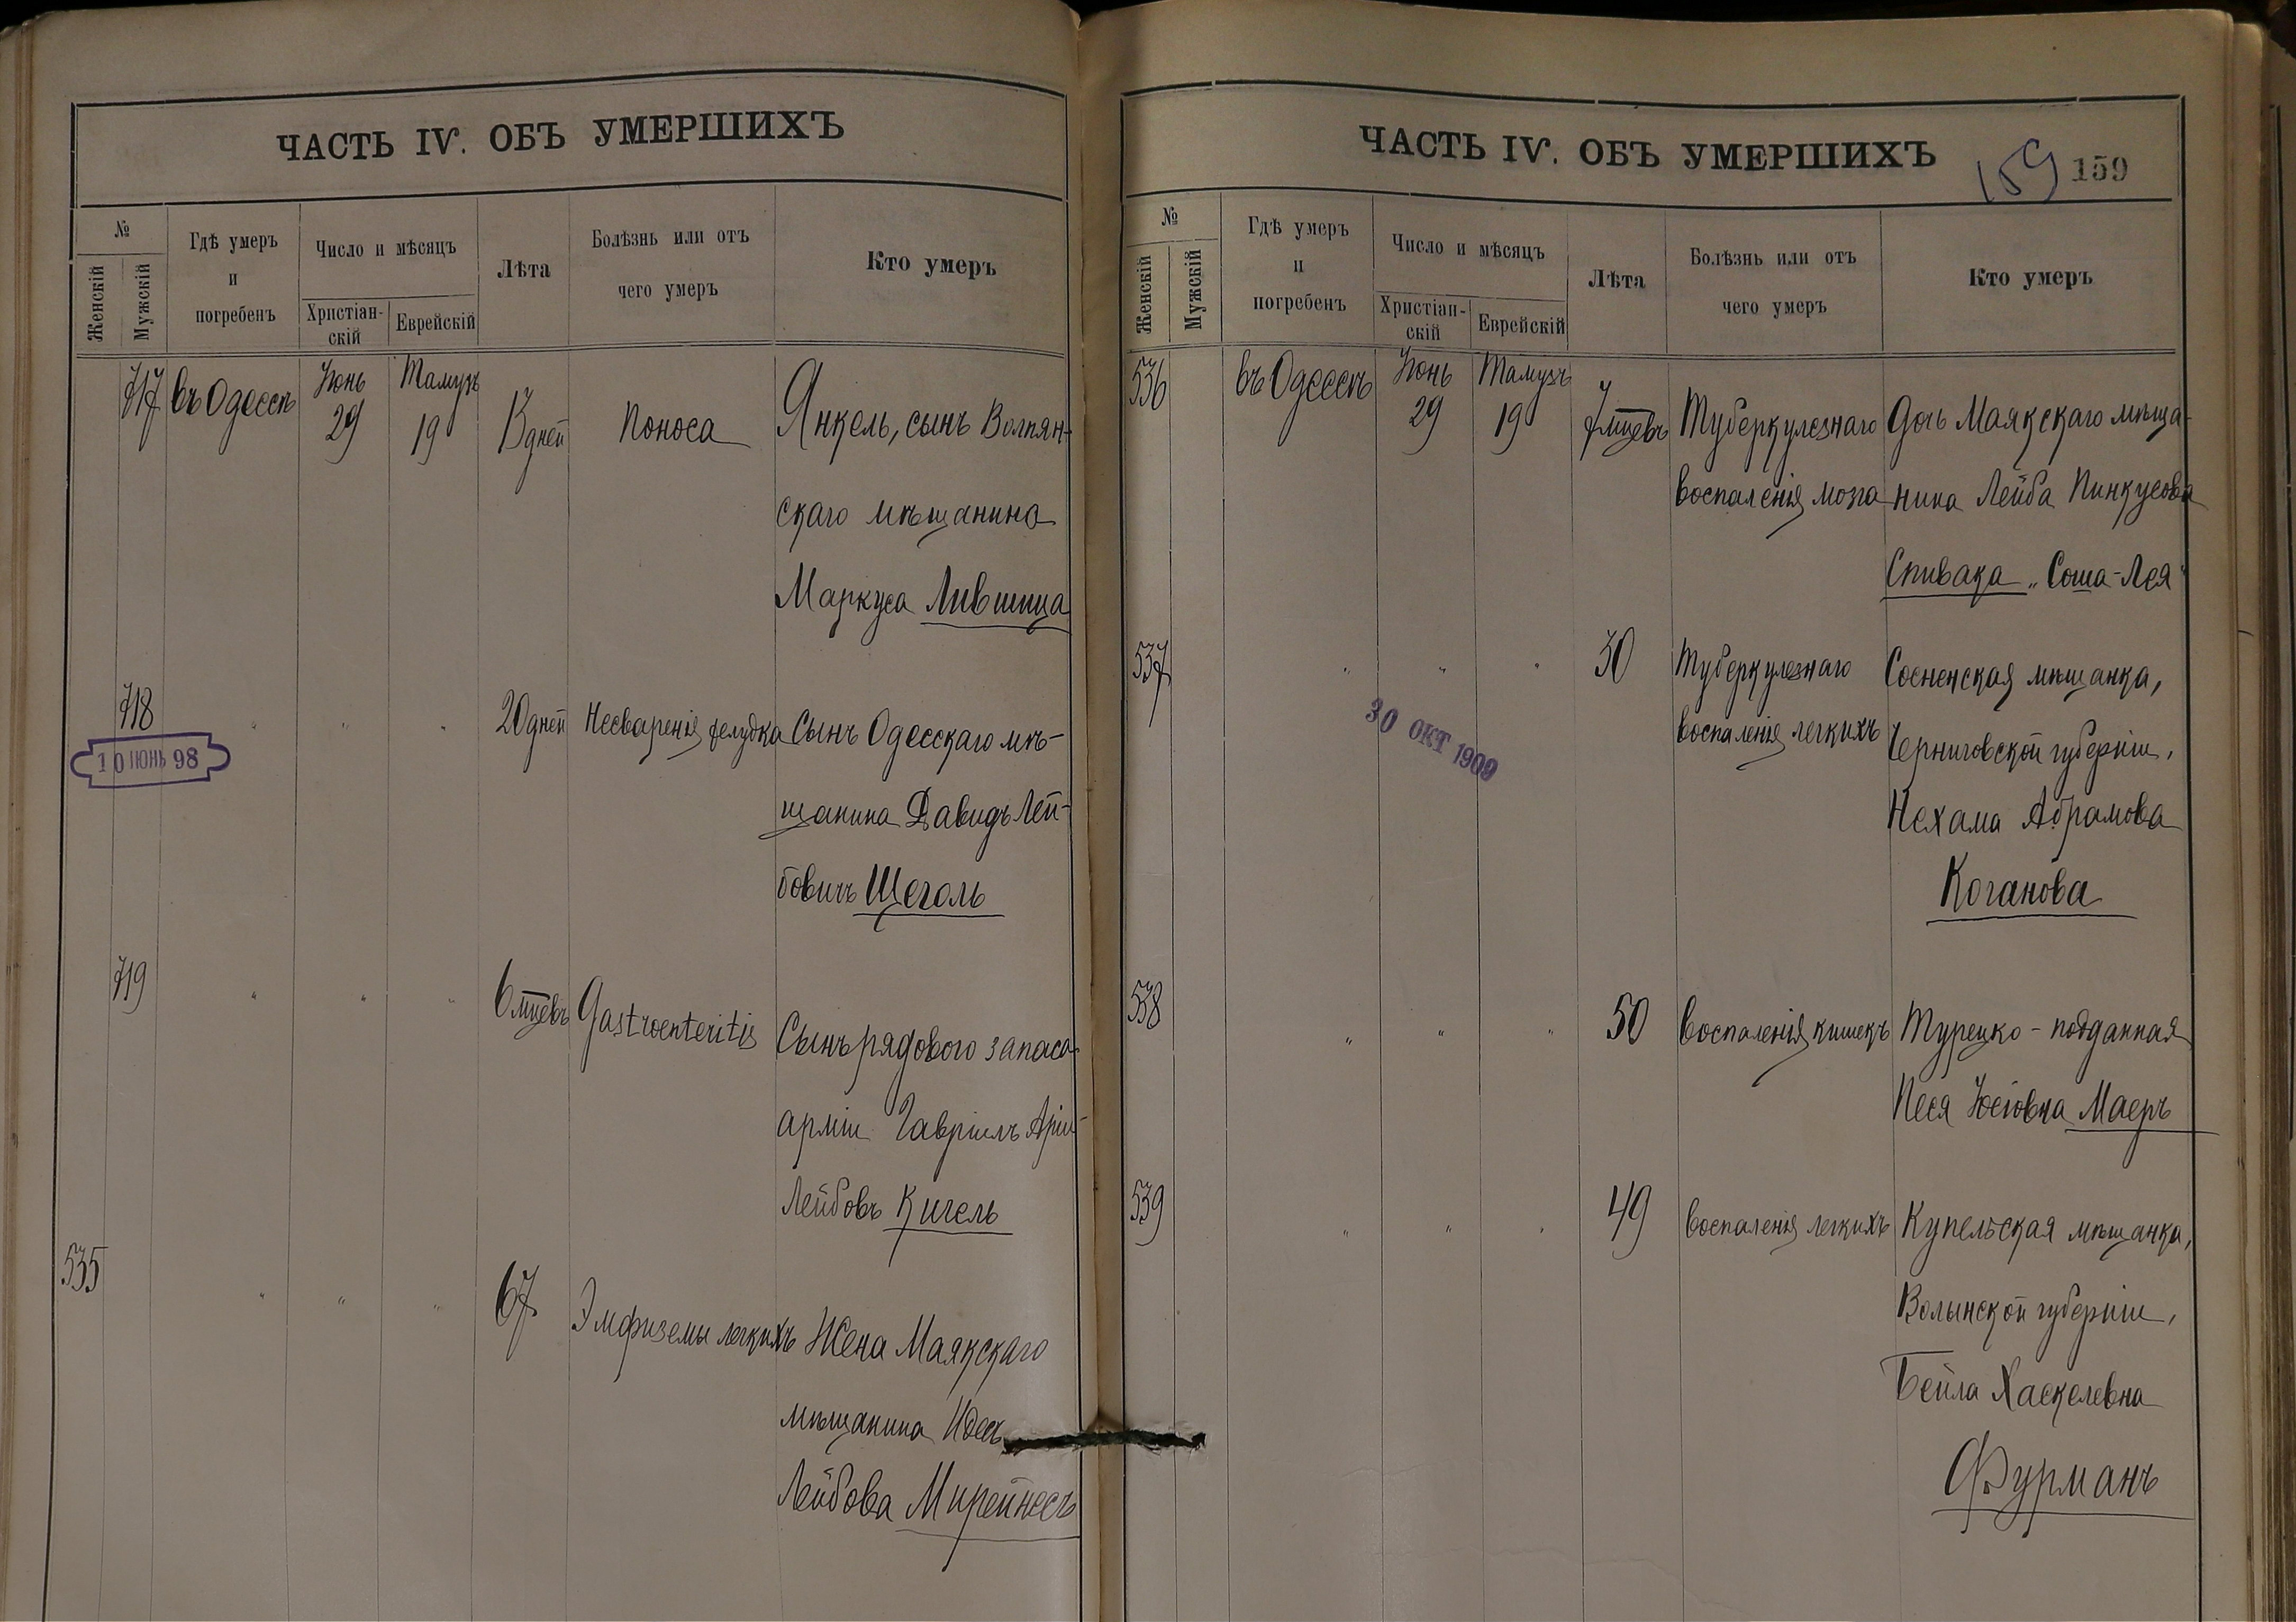 ЧАСТЬ IV. ОБЪ УМЕРШИХЪ
№
Женскій
Мужскій
Гдѣ умеръ
и
погребенъ
Число и мѣсяцъ
Христіан-
скій
Еврейскій
Лѣта
Болѣзнь или отъ
чего умеръ
Кто умеръ
717 въ Одессѣ Іюнь 29 Тамузъ 19 13 дней Поноса Янкель, сынъ Волпян-
скаго мѣщанина
Маркуса Лившица
718 " " " 20 дней Несваренія желудка Сынъ Одесскаго мѣ-
10 ІЮНЬ 98
щанина Давидъ Лей-
бовичъ Щеголь
719 " " " 6 мцевъ Gastroenteritis Сынъ рядового запаса
арміи Гавріилъ Арія-
Лейбовъ Кигель
535 " " " 67 Эмфиземы легкихъ Жена Маякскаго
мѣщанина Идесъ
Лейбова Мирейнесъ
ЧАСТЬ IV. ОБЪ УМЕРШИХЪ
159 159
№
Женскій
Мужскій
Гдѣ умеръ
и
погребенъ
Число и мѣсяцъ
Христіан-
скій
Еврейскій
Лѣта
Болѣзнь или отъ
чего умеръ
Кто умеръ
536 въ Одессѣ Іюнь 29 Тамузъ 19 7 мцевъ Туберкулезнаго Дочь Маякскаго мѣща-
воспаленія мозга нина Лейба Пинкусова
Спивака „Соша-Лея"
537 " " " 30 Туберкулезнаго Сосненская мѣщанка,
воспаленія легкихъ Черниговской губерніи,
30 ОКТ 1909
Нехама Абрамова
Коганова
538 " " " 50 Воспаленія кишекъ Турецко-подданная
Песя Іосіовна Маеръ
539 " " " 49 Воспаленія легкихъ Купельская мѣщанка,
Волынской губерніи,
Бейла Хаскелевна
Фурманъ